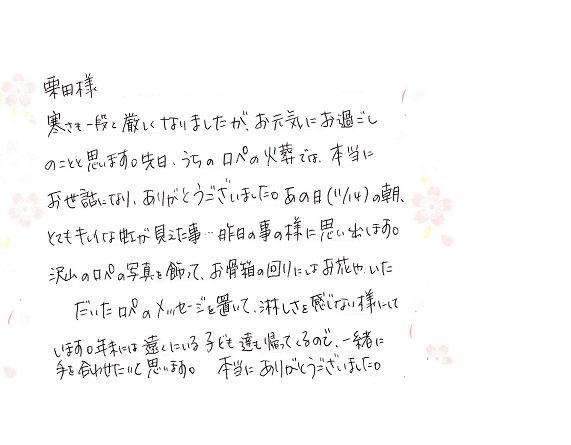 栗田様
寒さも一段と厳しくなりましたが、お元気にお過ごし
のことと思います。先日、うちのロペの火葬では、本当に
お世話になり、ありがとうございました。あの日(11/14)の朝、
とてもキレイな虹が見えた事…昨日の事の様に思い出します。
沢山のロペの写真を飾って、お骨箱の回りにはお花や、いた
だいたロペのメッセージを置いて、淋しさを感じない様にして
います。年末には遠くにいる子ども達も帰ってくるので、一緒に
手を合わせたいと思います。 本当にありがとうございました。